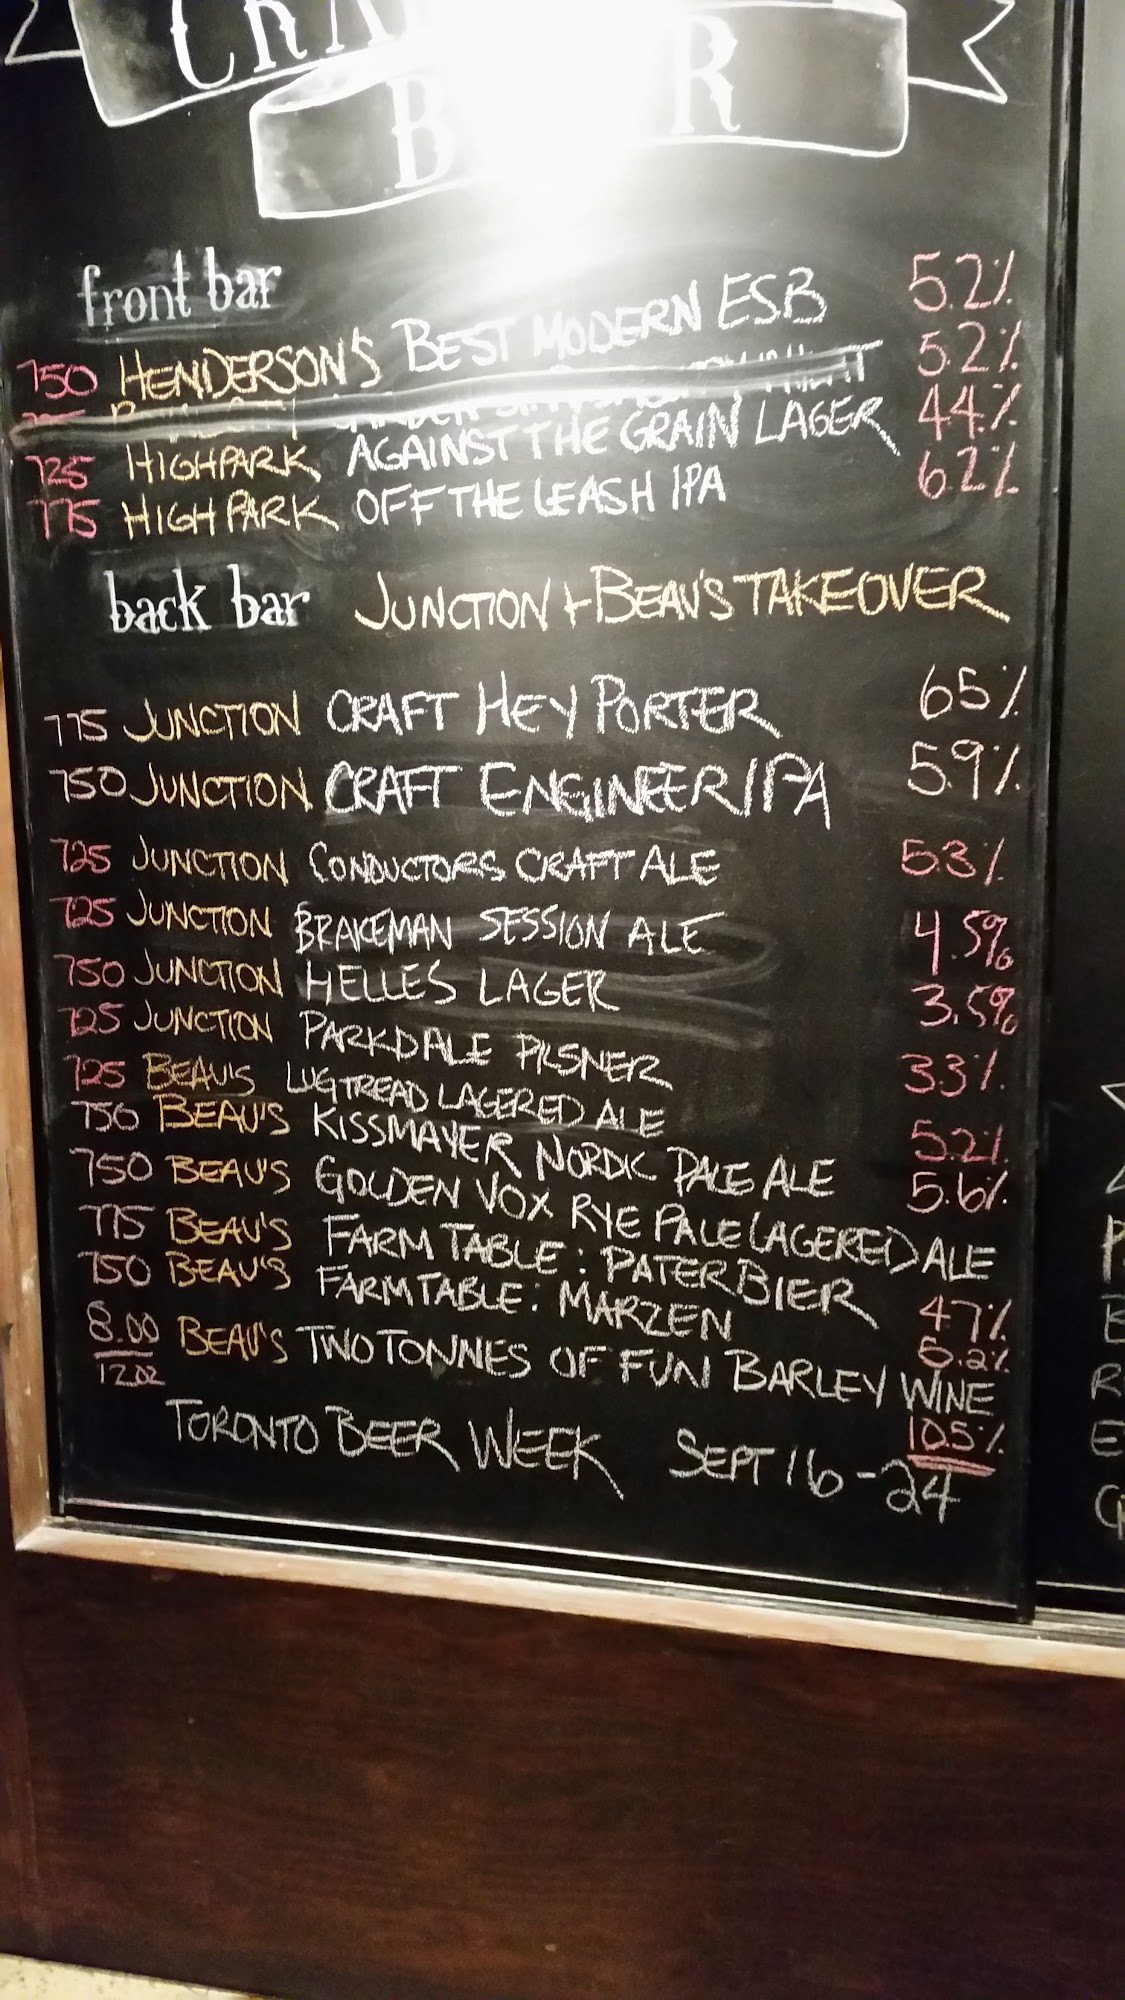 CRA
B R
front bar
750 HENDERSON'S BEST MODERN ESB 5.2%
5.2%
725 HIGHPARK AGAINST THE GRAIN LAGER 44%
775 HIGH PARK OFF THE LEASH IPA 6.2%
back bar JUNCTION + BEAU'S TAKEOVER
775 JUNCTION CRAFT HEY PORTER 65%
750 JUNCTION CRAFT ENGINEER IPA 5.9%
725 JUNCTION CONDUCTORS CRAFT ALE 53%
725 JUNCTION BRAKEMAN SESSION ALE 4.5%
750 JUNCTION HELLES LAGER 3.5%
725 JUNCTION PARKDALE PILSNER 33%
725 BEAU'S LUGTREAD LAGERED ALE 52%
750 BEAU'S KISSMAYER NORDIC PALE ALE 5.6%
750 BEAU'S GOLDEN VOX RYE PALE LAGERED ALE
775 BEAU'S FARM TABLE: PATERBIER 47%
750 BEAU'S FARMTABLE: MARZEN 5.2%
8.00 BEAU'S TWO TONNES OF FUN BARLEY WINE
12oz 10.5%
TORONTO BEER WEEK SEPT 16-24